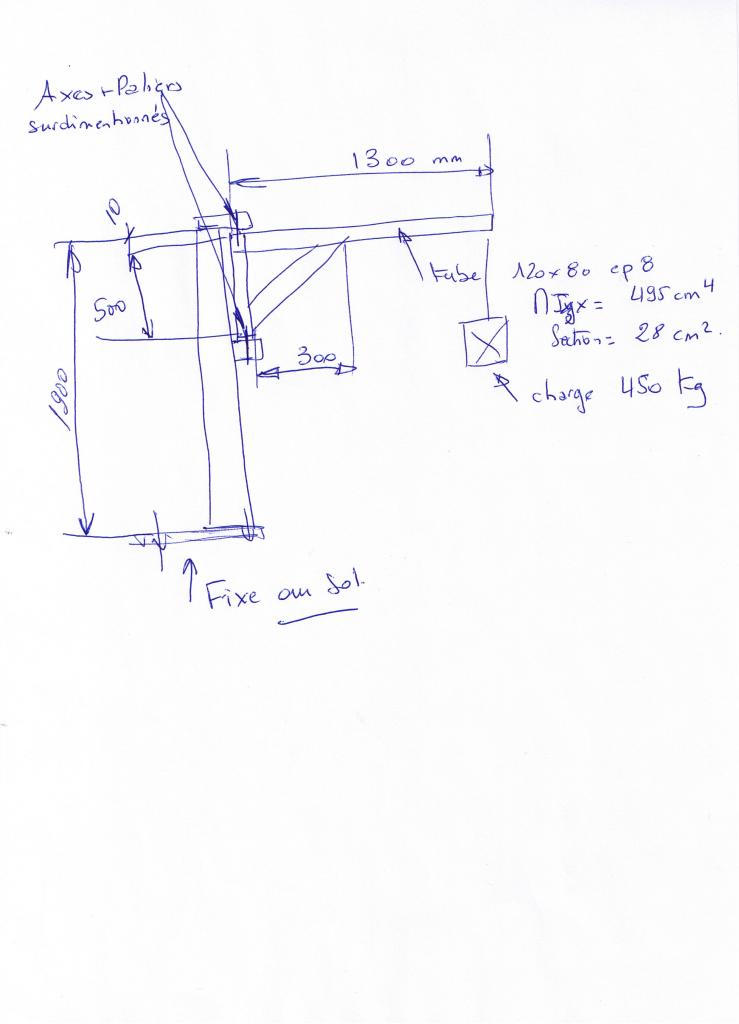 Axes + Paliers
surdimentionnés
1300 mm
10
500
1900
300
tube
120x80 ep 8
= 495 cm⁴
Section = 28 cm².
charge 450 kg
Fixe au Sol.